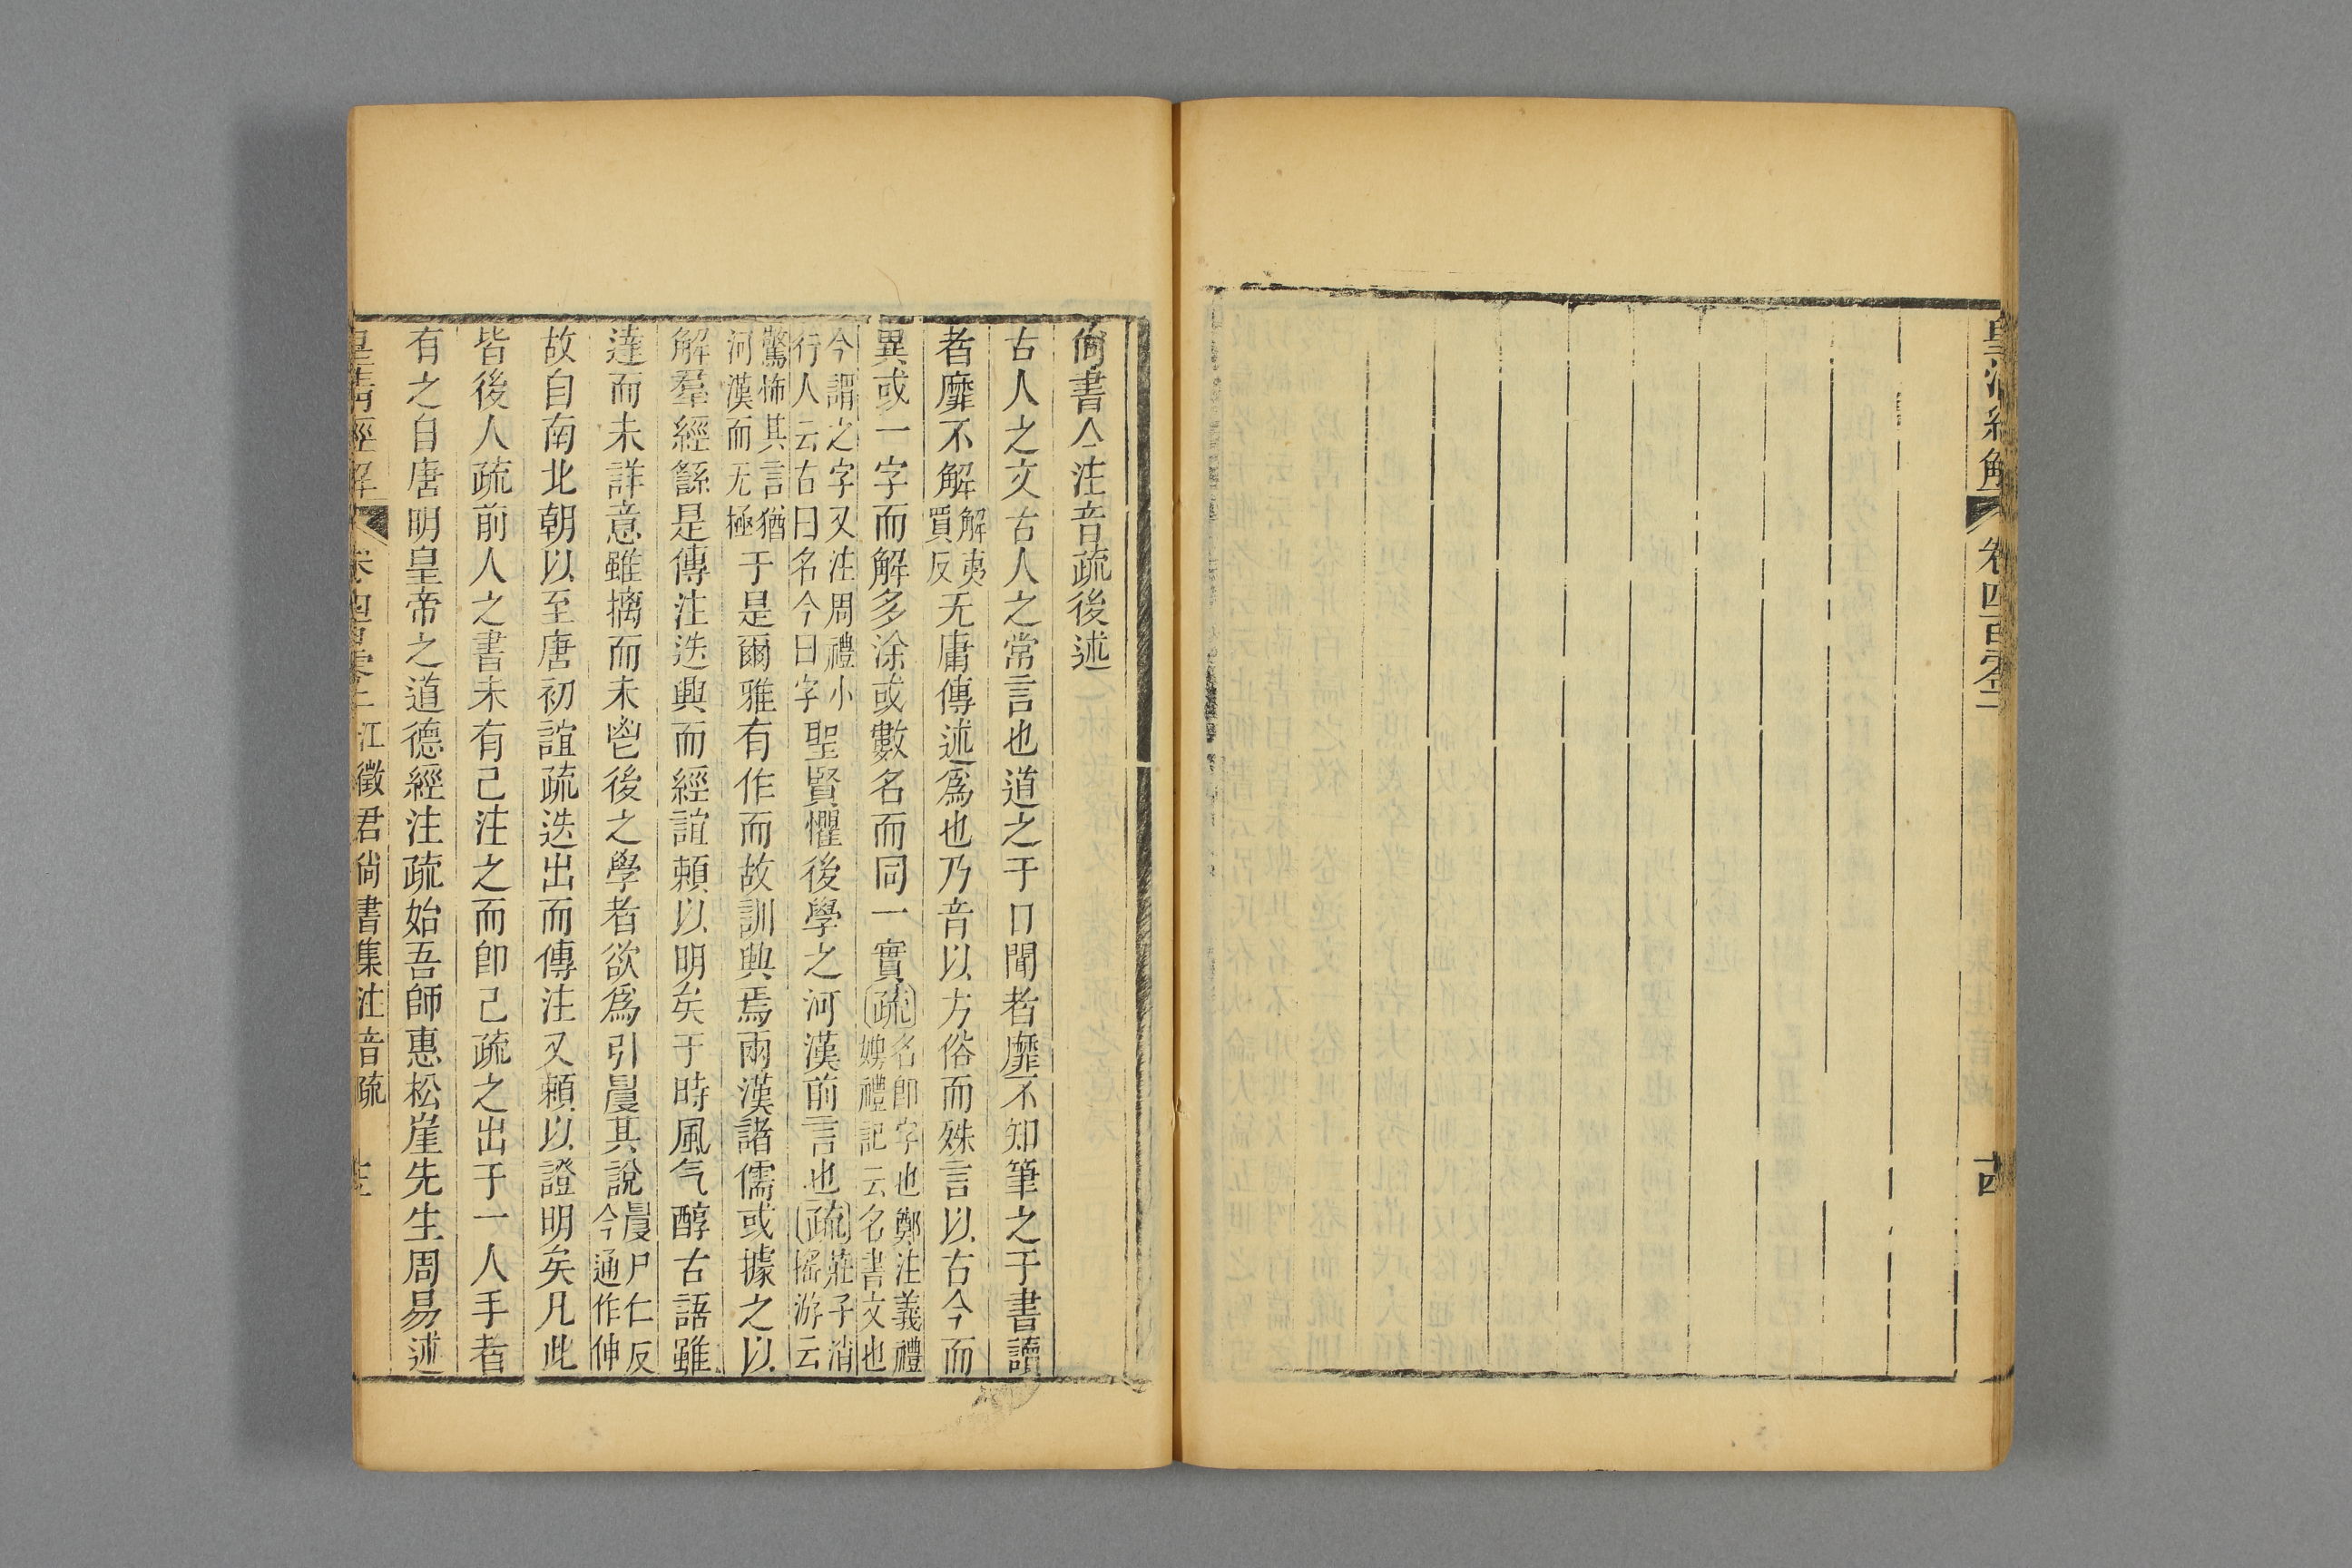 皇清經解
卷四百零二
古
尙書亼注音疏後述
古人之文古人之常言也道之于口聞者靡不知筆之于書讀
者靡不解解夷
買反无庸傳述爲也乃音以方俗而殊言以古今而
異或一字而解多涂或數名而同一實疏名卽字也鄭注義禮
娉禮記云名書文也
今謂之字又注周禮小
行人云古曰名今曰字聖賢懼後學之河漢前言也疏莊子消
搖游云
驚怖其言猶
河漢而无極于是爾雅有作而故訓興焉兩漢諸儒或據之以
解羣經繇是傳注迭興而經誼賴以明矣于時風气醇古語雖
達而未詳意雖摛而未鬯後之學者欲爲引㫳其說㫳尸仁反
今通作伸
故自南北朝以至唐初誼疏迭出而傳注又賴以證明矣凡此
皆後人疏前人之書未有己注之而卽己疏之出于一人手者
有之自唐明皇帝之道德經注疏始吾師惠松崖先生周易述
皇淸經解 卷四百零二 江徵君尙書集注音疏